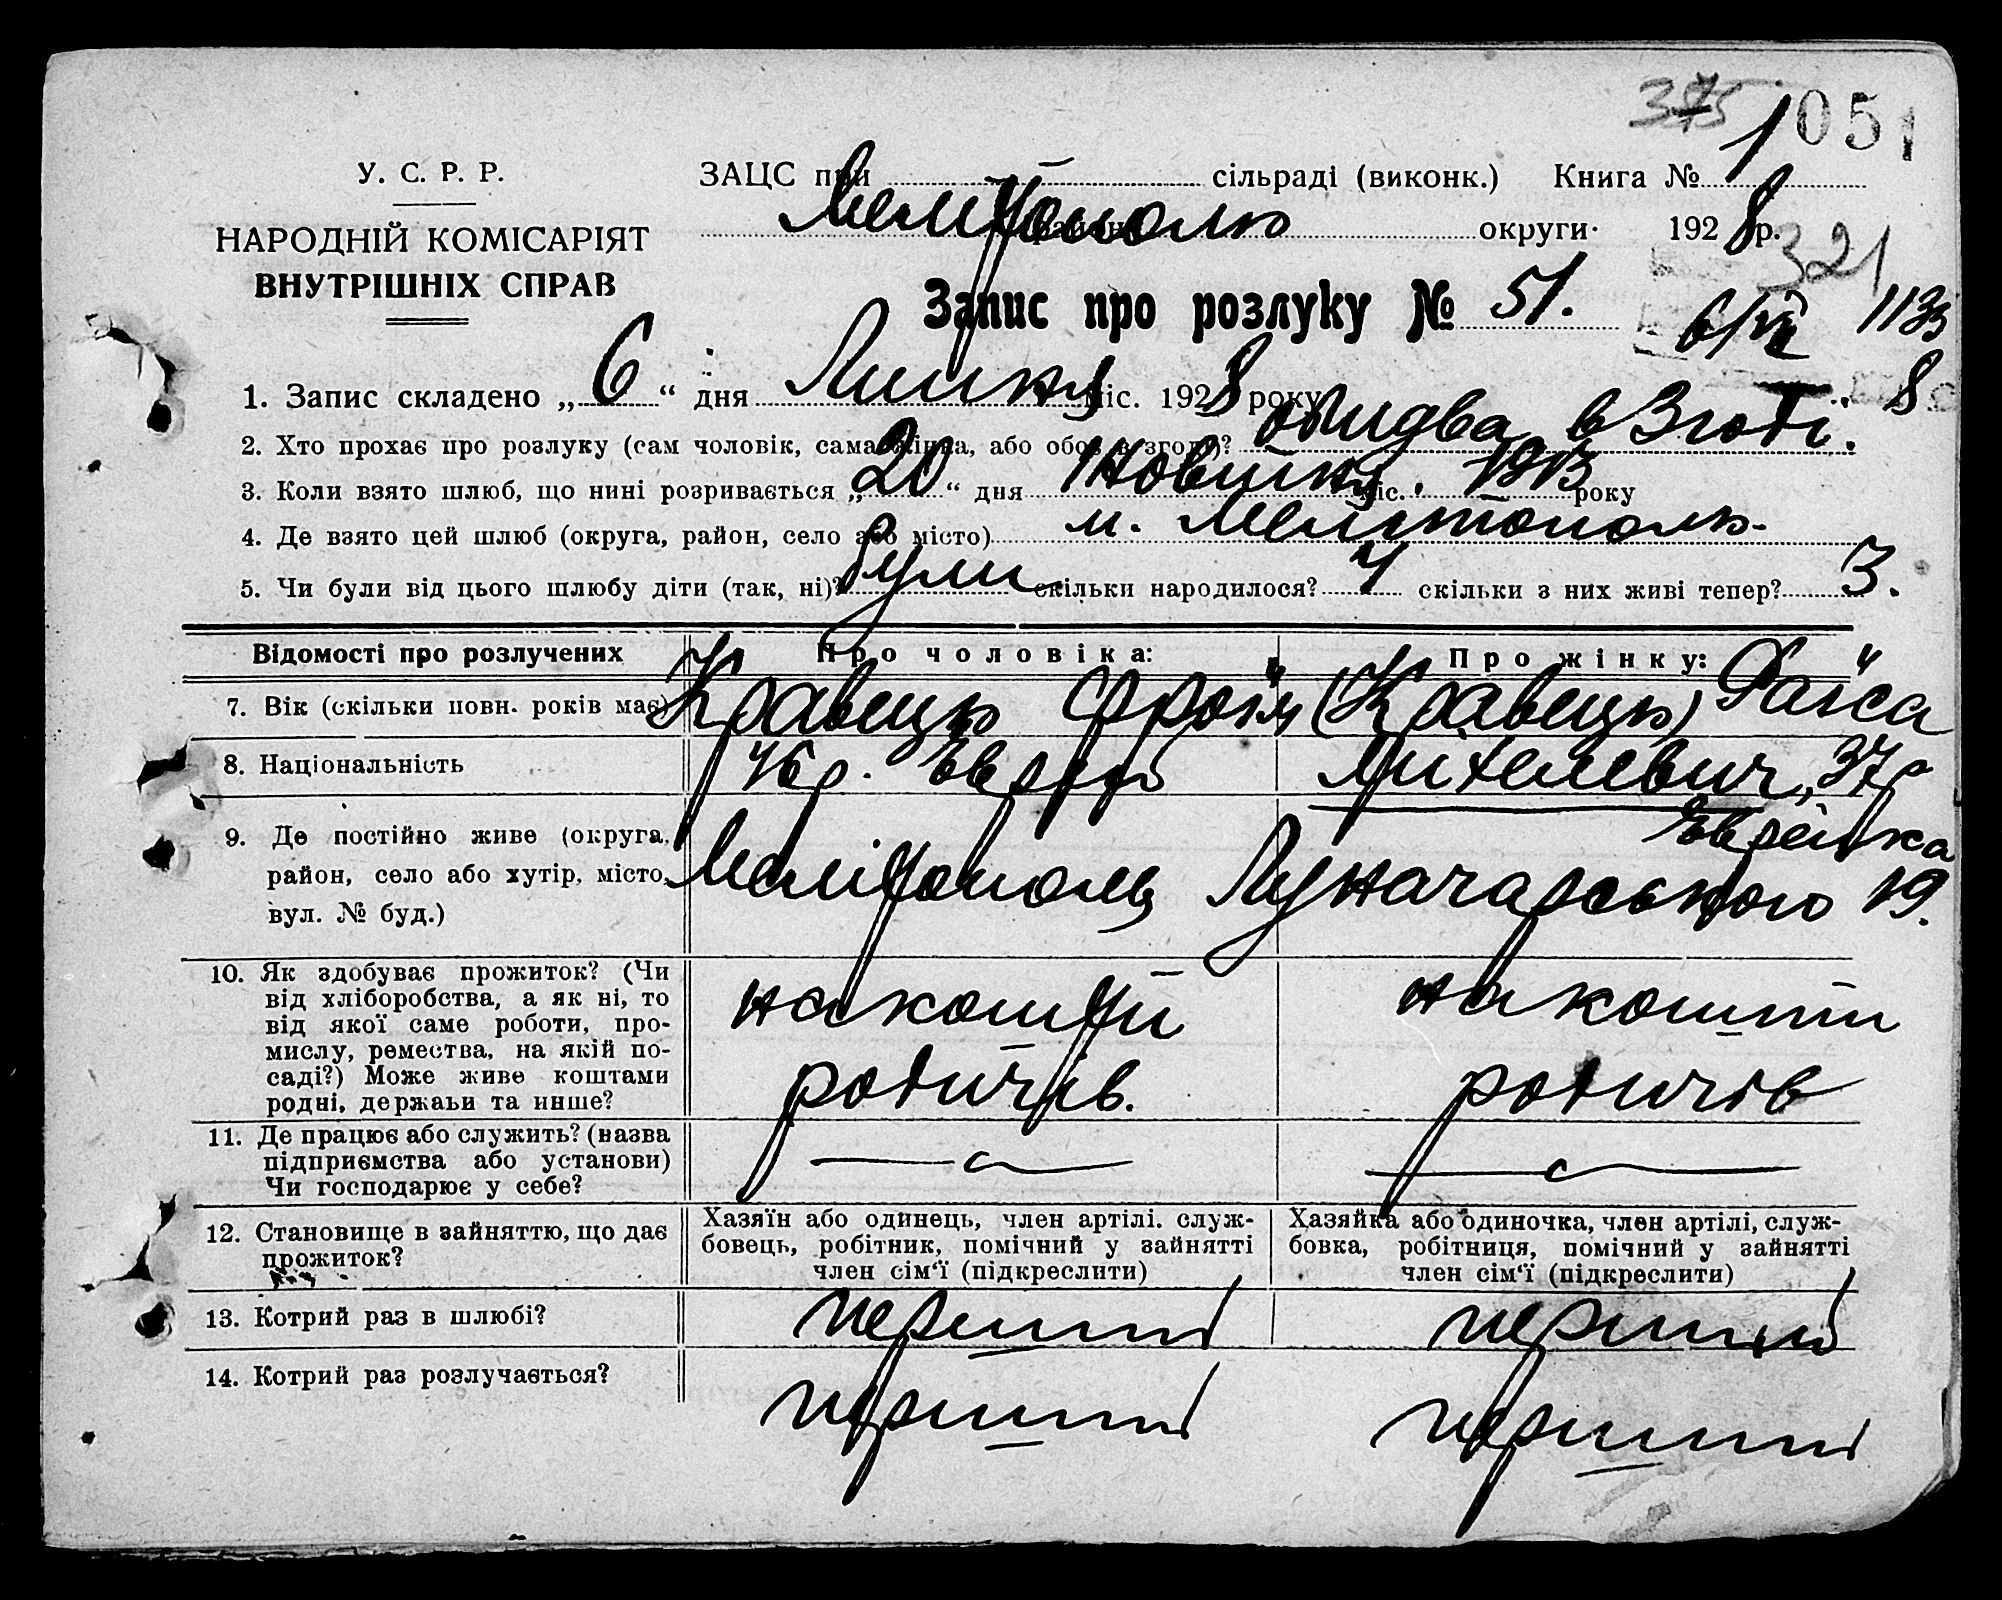 375 1051
У. С. Р. Р.
НАРОДНІЙ КОМІСАРІЯТ
ВНУТРІШНІХ СПРАВ
ЗАЦС при сільраді (виконк.) Книга № 1
Мелітополь району округи 1928 р.
321
Запис про розлуку № 51.
6/VII 1133
8
1. Запис складено „6“ дня Липня міс. 1928 року
2. Хто прохає про розлуку (сам чоловік, сама жінка, або обоє в згоді)? обидва в згоді.
3. Коли взято шлюб, що нині розривається „20“ дня міс. 1913 року
4. Де взято цей шлюб (округа, район, село або місто) м. Мелітополь.
5. Чи були від цього шлюбу діти (так, ні)? були скільки народилося? 4 скільки з них живі тепер? 3.
Відомості про розлучених Про чоловіка: Про жінку:
7. Вік (скільки повн. років має) Кравець Фроїм (Кравець) Фаїса
8. Національність 46 р. Єврей Михелевич, 37 р Єврейка
9. Де постійно живе (округа, район, село або хутір, місто, вул. № буд.) Мелітополь Луначарського 19.
10. Як здобуває прожиток? (Чи від хліборобства, а як ні, то від якої саме роботи, промислу, ремества, на якій посаді?) Може живе коштами родні, держави та инше?
на кошти родичів. на кошти родичів
11. Де працює або служить? (назва підприємства або установи) Чи господарює у себе?
12. Становище в зайняттю, що дає прожиток?
Хазяїн або одинець, член артілі. службовець, робітник, помічний у зайнятті член сім‘ї (підкреслити)
Хазяйка або одиночка, член артілі, службовка, робітниця, помічний у зайнятті член сім‘ї (підкреслити)
13. Котрий раз в шлюбі? перший перший
14. Котрий раз розлучається? перший перший